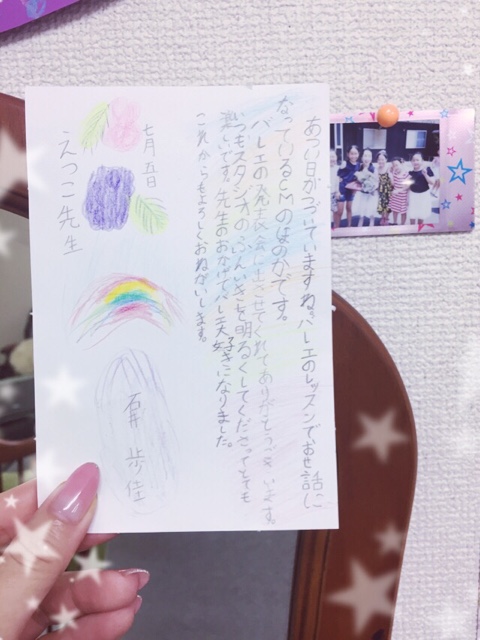 あつい日がつづいていますね。バレエのレッスンでお世話に
なっているCMのほのかです。
バレエの発表会に出させてくれてありがとうございます。
いつもスタジオのふんいきを明るくしてくださってとても
楽しいです。先生のおかげでバレエ大好きになりました。
これからもよろしくおねがいします。
七月五日
えつこ先生
石井 歩佳